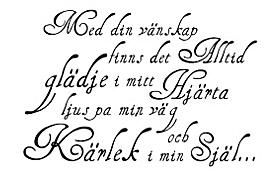 Med din vänskap
finns det Alltid
glädje i mitt Hjärta
ljus pa min väg
och
Kärlek i min Själ...